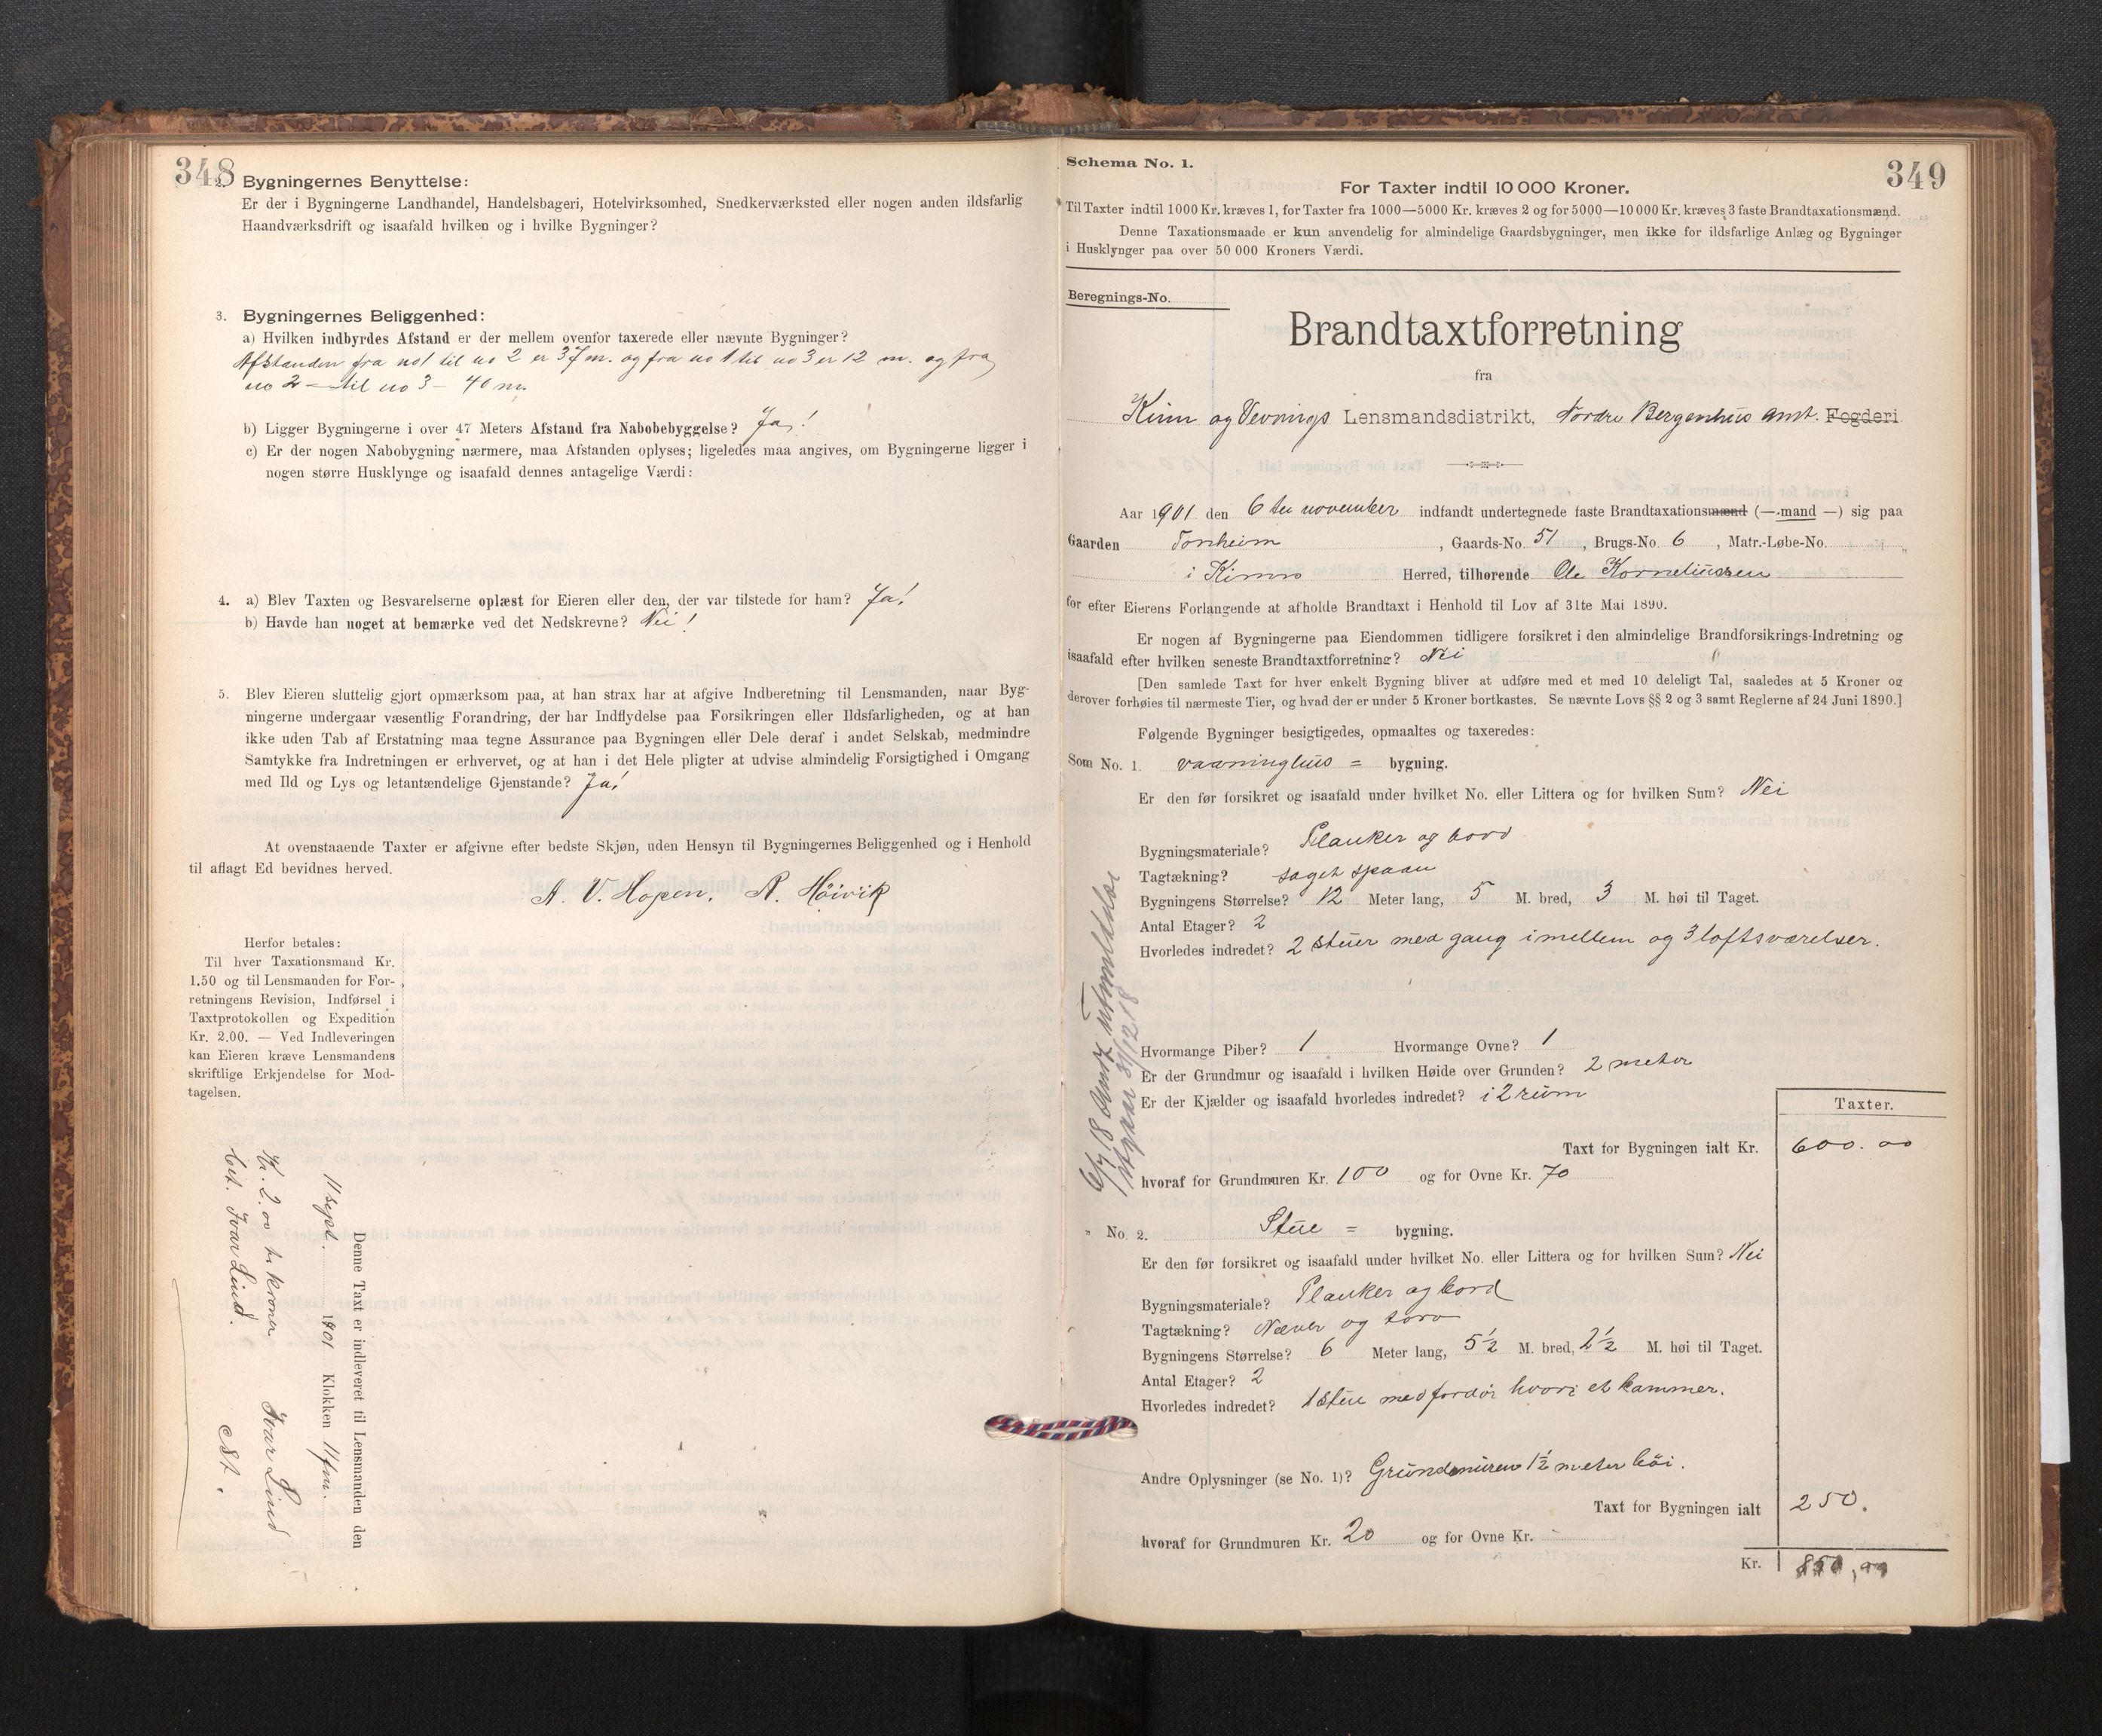 348
2. Bygningernes Benyttelse:
Er der i Bygningerne Landhandel, Handelsbageri, Hotelvirksomhed, Snedkerværksted eller nogen anden ildsfarlig
Haandværksdrift og isaafald hvilken og i hvilke Bygninger?
3. Bygningernes Beliggenhed:
a) Hvilken indbyrdes Afstand er der mellem ovenfor taxerede eller nævnte Bygninger?
Afstanden fra no 1 til no 2 er 37 m. og fra no 1 til no 3 er 12 m. og fra
no 2 = til no 3 - 40 m.
b) Ligger Bygningerne i over 47 Meters Afstand fra Nabobebyggelse? Ja!
c) Er der nogen Nabobygning nærmere, maa Afstanden oplyses; ligeledes maa angives, om Bygningerne ligger i
nogen større Husklynge og isaafald dennes antagelige Værdi:
4. a) Blev Taxten og Besvarelserne oplæst for Eieren eller den, der var tilstede for ham? Ja!
b) Havde han noget at bemærke ved det Nedskrevne? Nei!
5. Blev Eieren sluttelig gjort opmærksom paa, at han strax har at afgive Indberetning til Lensmanden, naar Byg-
ningerne undergaar væsentlig Forandring, der har Indflydelse paa Forsikringen eller Ildsfarligheden, og at han
ikke uden Tab af Erstatning maa tegne Assurance paa Bygningen eller Dele deraf i andet Selskab, medmindre
Samtykke fra Indretningen er erhvervet, og at han i det Hele pligter at udvise almindelig Forsigtighed i Omgang
med Ild og Lys og letantændelige Gjenstande? Ja!
At ovenstaaende Taxter er afgivne efter bedste Skjøn, uden Hensyn til Bygningernes Beliggenhed og i Henhold
til aflagt Ed bevidnes herved.
A. V. Hopen. R. Höivik
Herfor betales:
Til hver Taxationsmand Kr.
1.50 og til Lensmanden for For-
retningens Revision, Indførsel i
Taxtprotokollen og Expedition
Kr. 2.00. — Ved Indleveringen
kan Eieren kræve Lensmandens
skriftlige Erkjendelse for Mod-
tagelsen.
Denne Taxt er indleveret til Lensmanden den
11 Sept. 1901 Klokken 11 fm.
Kr. 2.00 to kroner Ivar Lind
bet. Ivar Lind.
Schema No. 1.
349
For Taxter indtil 10 000 Kroner.
Til Taxter indtil 1000 Kr. kræves 1, for Taxter fra 1000—5000 Kr. kræves 2 og for 5000—10 000 Kr. kræves 3 faste Brandtaxationsmænd.
Denne Taxationsmaade er kun anvendelig for almindelige Gaardsbygninger, men ikke for ildsfarlige Anlæg og Bygninger
i Husklynger paa over 50 000 Kroners Værdi.
Beregnings-No.
Brandtaxtforretning
fra
Kinn og Vevrings Lensmandsdistrikt, Nordre Bergenhus Amt. Fogderi
Aar 1901 den 6te november indfandt undertegnede faste Brandtaxationsmænd (— mand —) sig paa
Gaarden Tonheim, Gaards-No. 51, Brugs-No. 6, Matr.-Løbe-No.
i Kinns Herred, tilhørende Ole Korneliussen
for efter Eierens Forlangende at afholde Brandtaxt i Henhold til Lov af 31te Mai 1890.
Er nogen af Bygningerne paa Eiendommen tidligere forsikret i den almindelige Brandforsikrings-Indretning og
isaafald efter hvilken seneste Brandtaxtforretning? Nei
[Den samlede Taxt for hver enkelt Bygning bliver at udføre med et med 10 deleligt Tal, saaledes at 5 Kroner og
derover forhøies til nærmeste Tier, og hvad der er under 5 Kroner bortkastes. Se nævnte Lovs §§ 2 og 3 samt Reglerne af 24 Juni 1890.]
Følgende Bygninger besigtigedes, opmaaltes og taxeredes:
Som No. 1. vaaninghus = bygning.
Er den før forsikret og isaafald under hvilket No. eller Littera og for hvilken Sum? Nei
Bygningsmateriale? Planker og bord
Tagtækning? saget spaan
Bygningens Størrelse? 12 Meter lang, 5 M. bred, 3 M. høi til Taget.
Antal Etager? 2
Hvorledes indredet? 2 stuer med gang imellem og 3 loftsværelser.
Hvormange Piber? 1 Hvormange Ovne? 1
Er der Grundmur og isaafald i hvilken Høide over Grunden? 2 meter
Er der Kjælder og isaafald hvorledes indredet? i 2 rum
Taxter.
Taxt for Bygningen ialt Kr. 600.00
hvoraf for Grundmuren Kr. 100 og for Ovne Kr. 70
" No. 2. Stue = bygning.
Er den før forsikret og isaafald under hvilket No. eller Littera og for hvilken Sum? Nei
Bygningsmateriale? Planker og bord
Tagtækning? Næver og torv
Bygningens Størrelse? 6 Meter lang, 5½ M. bred, 2½ M. høi til Taget.
Antal Etager? 2
Hvorledes indredet? 1 stue med fordør hvori et kammer.
Andre Oplysninger (se No. 1)? Grundmuren 1½ meter höi.
Taxt for Bygningen ialt 250.
hvoraf for Grundmuren Kr. 20 og for Ovne Kr.
Kr. 850,00